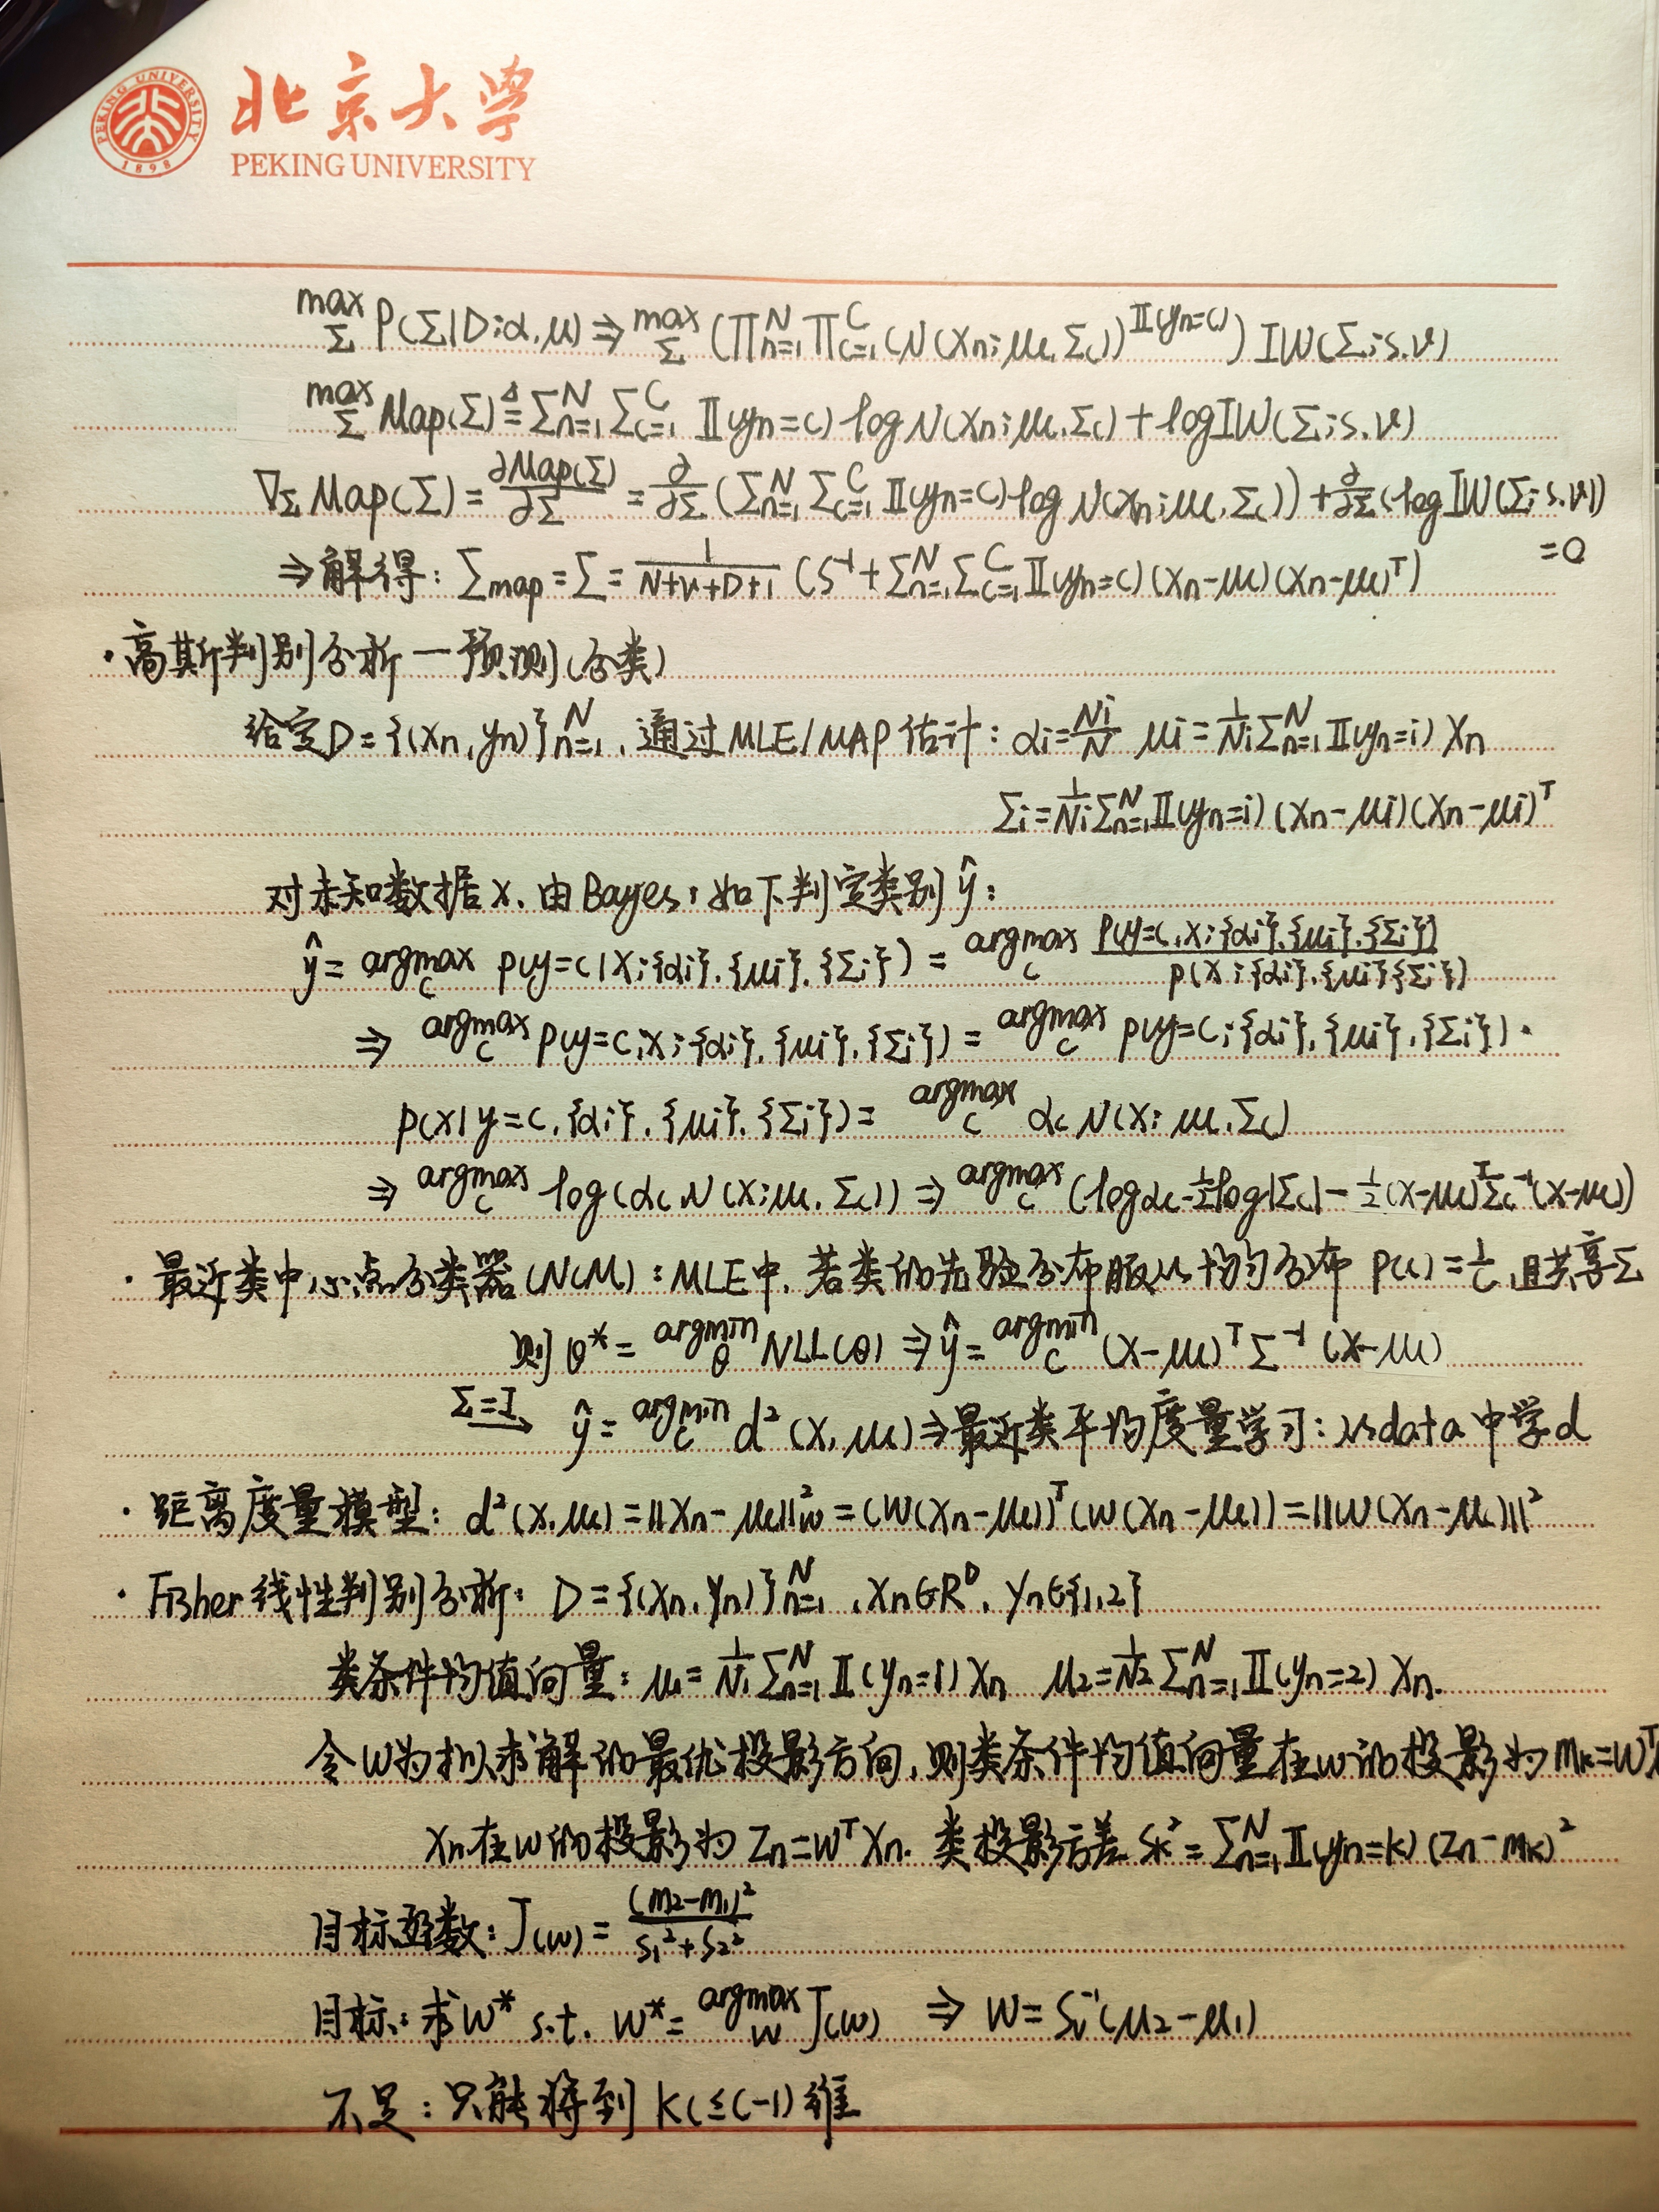 北京大学
PEKING UNIVERSITY
PEKING UNIVERSITY
1898
max_Σ P(Σ|D;α,μ) ⇒ max_Σ (∏_{n=1}^N ∏_{c=1}^C (N(x_n;μ_c,Σ_c))^{𝕀(y_n=c)}) IW(Σ;S,ν)
max_Σ Map(Σ) ≜ Σ_{n=1}^N Σ_{c=1}^C 𝕀(y_n=c) log N(x_n;μ_c,Σ_c) + log IW(Σ;S,ν)
∇_Σ Map(Σ) = ∂Map(Σ)/∂Σ = ∂/∂Σ (Σ_{n=1}^N Σ_{c=1}^C 𝕀(y_n=c) log N(x_n;μ_c,Σ_c)) + ∂/∂Σ (log IW(Σ;S,ν))
=0
⇒解得: Σ_map = Σ = 1/(N+ν+D+1) (S^{-1} + Σ_{n=1}^N Σ_{c=1}^C 𝕀(y_n=c)(x_n-μ_c)(x_n-μ_c)^T)
·高斯判别分析—预测(分类)
给定D={(x_n,y_n)}_{n=1}^N,通过MLE/MAP估计: α_i=N_i/N μ_i=1/N_i Σ_{n=1}^N 𝕀(y_n=i) x_n
Σ_i=1/N_i Σ_{n=1}^N 𝕀(y_n=i)(x_n-μ_i)(x_n-μ_i)^T
对未知数据x,由Bayes,如下判定类别ŷ:
ŷ = argmax_c p(y=c|x;{α_i},{μ_i},{Σ_i}) = argmax_c p(y=c,x;{α_i},{μ_i},{Σ_i})/p(x;{α_i},{μ_i}{Σ_i})
⇒ argmax_c p(y=c,x;{α_i},{μ_i},{Σ_i}) = argmax_c p(y=c;{α_i},{μ_i},{Σ_i})·
p(x|y=c,{α_i},{μ_i},{Σ_i}) = argmax_c α_c N(x;μ_c,Σ_c)
⇒ argmax_c log(α_c N(x;μ_c,Σ_c)) ⇒ argmax_c (logα_c-1/2 log|Σ_c|-1/2(x-μ_c)^T Σ_c^{-1}(x-μ_c))
·最近类中心点分类器(NCM):MLE中,若类的先验分布服从均匀分布 P(c)=1/C,且共享Σ
则θ* = argmin_θ NLL(θ) ⇒ ŷ = argmin_c (x-μ_c)^T Σ^{-1} (x-μ_c)
Σ=I→ ŷ = argmin_c d²(x,μ_c)⇒最近类平均度量学习:从data中学d
·距离度量模型: d²(x,μ_c)=||x_n-μ_c||²_w=(W(x_n-μ_c))^T(W(x_n-μ_c))=||W(x_n-μ_c)||²
·Fisher线性判别分析: D={(x_n,y_n)}_{n=1}^N,x_n∈R^D,y_n∈{1,2}
类条件均值向量: μ_1=1/N_1 Σ_{n=1}^N 𝕀(y_n=1) x_n μ_2=1/N_2 Σ_{n=1}^N 𝕀(y_n=2) x_n.
令w为拟求解的最优投影方向,则类条件均值向量在w的投影为m_k=w^T
x_n在w的投影为 z_n=w^T x_n. 类投影方差 s_k²=Σ_{n=1}^N 𝕀(y_n=k)(z_n-m_k)²
目标函数: J(w)=(m_2-m_1)²/(s_1²+s_2²)
目标:求w* s.t. w*=argmax_w J(w) ⇒ w=S_w^{-1}(μ_2-μ_1)
不足:只能得到 k(≤C-1)维